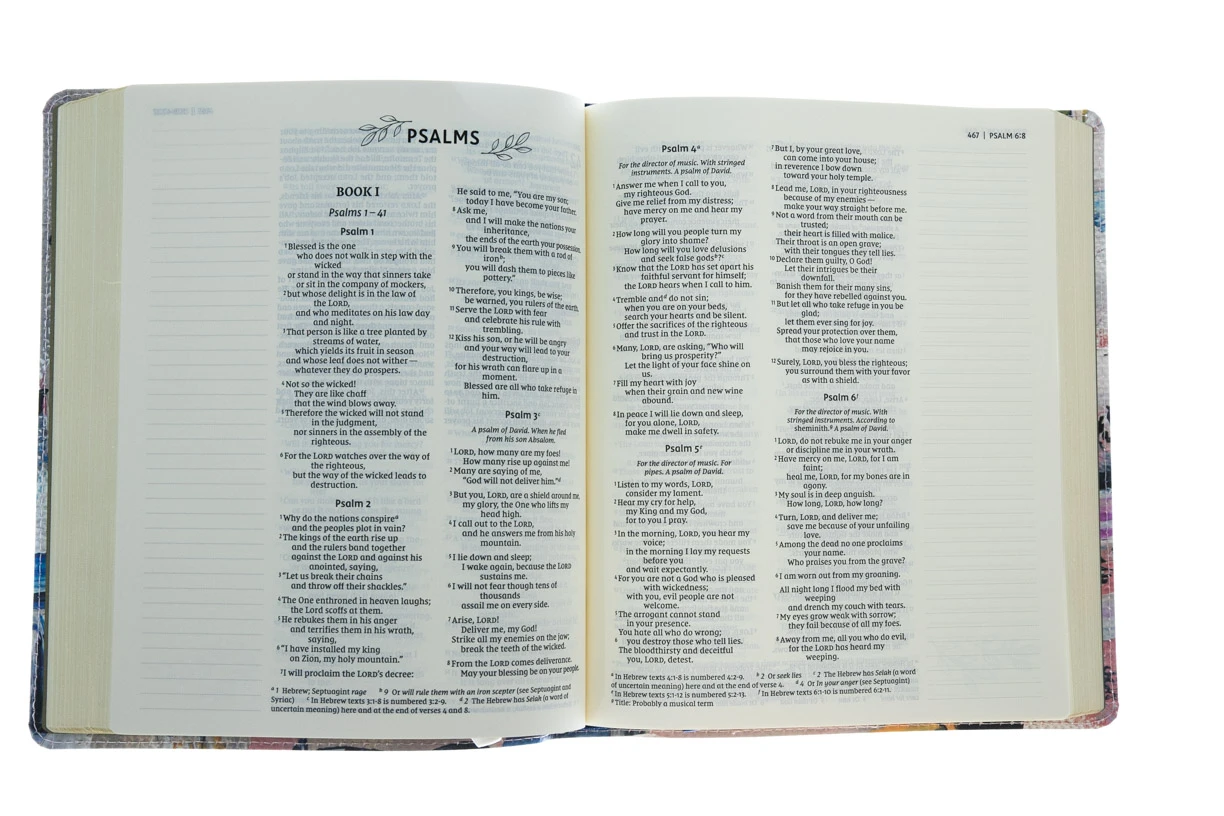 PSALMS
BOOK I
Psalms 1–41
Psalm 1
1Blessed is the one
who does not walk in step with the
wicked
or stand in the way that sinners take
or sit in the company of mockers,
2but whose delight is in the law of
the LORD,
and who meditates on his law day
and night.
3That person is like a tree planted by
streams of water,
which yields its fruit in season
and whose leaf does not wither—
whatever they do prospers.
4Not so the wicked!
They are like chaff
that the wind blows away.
5Therefore the wicked will not stand
in the judgment,
nor sinners in the assembly of the
righteous.
6For the LORD watches over the way of
the righteous,
but the way of the wicked leads to
destruction.
Psalm 2
1Why do the nations conspirea
and the peoples plot in vain?
2The kings of the earth rise up
and the rulers band together
against the LORD and against his
anointed, saying,
3“Let us break their chains
and throw off their shackles.”
4The One enthroned in heaven laughs;
the Lord scoffs at them.
5He rebukes them in his anger
and terrifies them in his wrath,
saying,
6“I have installed my king
on Zion, my holy mountain.”
7I will proclaim the LORD’s decree:
He said to me, “You are my son;
today I have become your father.
8Ask me,
and I will make the nations your
inheritance,
the ends of the earth your possession.
9You will break them with a rod of
ironb;
you will dash them to pieces like
pottery.”
10Therefore, you kings, be wise;
be warned, you rulers of the earth.
11Serve the LORD with fear
and celebrate his rule with
trembling.
12Kiss his son, or he will be angry
and your way will lead to your
destruction,
for his wrath can flare up in a
moment.
Blessed are all who take refuge in
him.
Psalm 3c
A psalm of David. When he fled
from his son Absalom.
1LORD, how many are my foes!
How many rise up against me!
2Many are saying of me,
“God will not deliver him.”d
3But you, LORD, are a shield around me,
my glory, the One who lifts my
head high.
4I call out to the LORD,
and he answers me from his holy
mountain.
5I lie down and sleep;
I wake again, because the LORD
sustains me.
6I will not fear though tens of
thousands
assail me on every side.
7Arise, LORD!
Deliver me, my God!
Strike all my enemies on the jaw;
break the teeth of the wicked.
8From the LORD comes deliverance.
May your blessing be on your people.
a 1 Hebrew; Septuagint rage b 9 Or will rule them with an iron scepter (see Septuagint and
Syriac) c In Hebrew texts 3:1-8 is numbered 3:2-9. d 2 The Hebrew has Selah (a word of
uncertain meaning) here and at the end of verses 4 and 8.
467 | PSALM 6:8
Psalm 4a
For the director of music. With stringed
instruments. A psalm of David.
1Answer me when I call to you,
my righteous God.
Give me relief from my distress;
have mercy on me and hear my
prayer.
2How long will you people turn my
glory into shame?
How long will you love delusions
and seek false godsb?c
3Know that the LORD has set apart his
faithful servant for himself;
the LORD hears when I call to him.
4Tremble andd do not sin;
when you are on your beds,
search your hearts and be silent.
5Offer the sacrifices of the righteous
and trust in the LORD.
6Many, LORD, are asking, “Who will
bring us prosperity?”
Let the light of your face shine on
us.
7Fill my heart with joy
when their grain and new wine
abound.
8In peace I will lie down and sleep,
for you alone, LORD,
make me dwell in safety.
Psalm 5e
For the director of music. For
pipes. A psalm of David.
1Listen to my words, LORD,
consider my lament.
2Hear my cry for help,
my King and my God,
for to you I pray.
3In the morning, LORD, you hear my
voice;
in the morning I lay my requests
before you
and wait expectantly.
4For you are not a God who is pleased
with wickedness;
with you, evil people are not
welcome.
5The arrogant cannot stand
in your presence.
You hate all who do wrong;
6you destroy those who tell lies.
The bloodthirsty and deceitful
you, LORD, detest.
7But I, by your great love,
can come into your house;
in reverence I bow down
toward your holy temple.
8Lead me, LORD, in your righteousness
because of my enemies—
make your way straight before me.
9Not a word from their mouth can be
trusted;
their heart is filled with malice.
Their throat is an open grave;
with their tongues they tell lies.
10Declare them guilty, O God!
Let their intrigues be their
downfall.
Banish them for their many sins,
for they have rebelled against you.
11But let all who take refuge in you be
glad;
let them ever sing for joy.
Spread your protection over them,
that those who love your name
may rejoice in you.
12Surely, LORD, you bless the righteous;
you surround them with your favor
as with a shield.
Psalm 6f
For the director of music. With
stringed instruments. According to
sheminith.g A psalm of David.
1LORD, do not rebuke me in your anger
or discipline me in your wrath.
2Have mercy on me, LORD, for I am
faint;
heal me, LORD, for my bones are in
agony.
3My soul is in deep anguish.
How long, LORD, how long?
4Turn, LORD, and deliver me;
save me because of your unfailing
love.
5Among the dead no one proclaims
your name.
Who praises you from the grave?
6I am worn out from my groaning.
All night long I flood my bed with
weeping
and drench my couch with tears.
7My eyes grow weak with sorrow;
they fail because of all my foes.
8Away from me, all you who do evil,
for the LORD has heard my
weeping.
a In Hebrew texts 4:1-8 is numbered 4:2-9. b 2 Or seek lies c 2 The Hebrew has Selah (a word
of uncertain meaning) here and at the end of verse 4. d 4 Or In your anger (see Septuagint)
e In Hebrew texts 5:1-12 is numbered 5:2-13. f In Hebrew texts 6:1-10 is numbered 6:2-11.
g Title: Probably a musical term